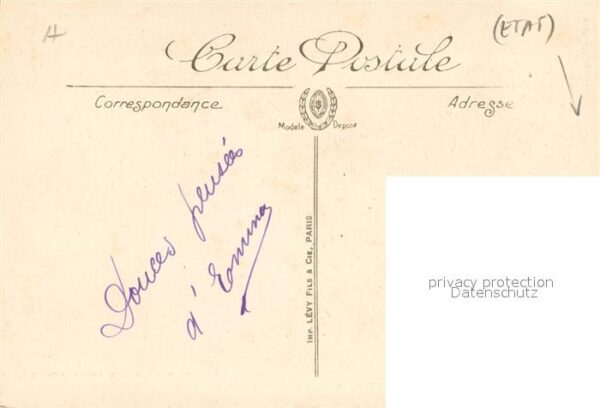 H
(ETAT)
Carte Postale
Correspondance
Adresse
Modele Deposé
Douces pensées
d'Emma
IMP. LÉVY FILS & CIE, PARIS
privacy protection
Datenschutz